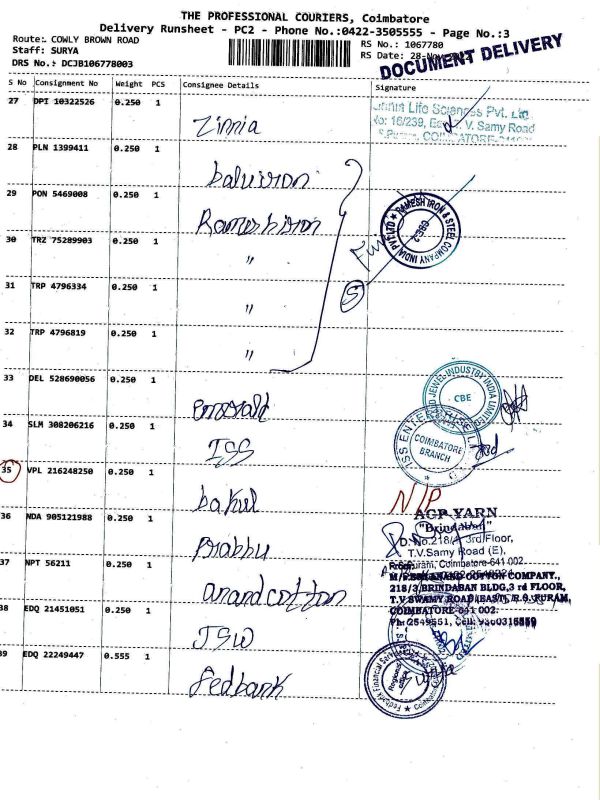 THE PROFESSIONAL COURIERS, Coimbatore
Delivery Runsheet - PC2 - Phone No.:0422-3505555 - Page No.:3
Route: COWLY BROWN ROAD
RS No.: 1067780
Staff: SURYA
RS Date: 28-Nov
DRS No.: DCJB106778003
DOCUMENT DELIVERY
S No Consignment No Weight PCS Consignee Details Signature
27 DPI 10322526 0.250 1
Zinnia
Life Sciences Pvt. Ltd.
No: 16/239, V. Samy Road
28 PLN 1399411 0.250 1
29 PON 5469008 0.250 1
Rameshiron
RAMESH IRON & STEEL COMPANY INDIA PVT LTD
30 TRZ 75289903 0.250 1
"
31 TRP 4796334 0.250 1
"
5
32 TRP 4796819 0.250 1
"
33 DEL 528690056 0.250 1
emerald
JEWEL INDUSTRY INDIA LIMITED
CBE
34 SLM 308206216 0.250 1
ISS
COIMBATORE
BRANCH
35 VPL 216248250 0.250 1
bakul
N/P
36 NDA 905121988 0.250 1
prabhu
AGP YARN
"Brindaban"
D.No.218/A 3rd/Floor,
T.V.Samy Road (E),
Puram, Coimbatore-641 002.
37 NPT 56211 0.250 1
anand cotton
ANAND COTTON COMPANY.,
218/3, BRINDABAN BLDG, 3 rd FLOOR,
T.V SWAMY ROAD (EAST), R.S. PURAM,
COIMBATORE-641 002.
38 EDQ 21451051 0.250 1
JSW
39 EDQ 22249447 0.555 1
fedbank
Fedbank Financial Services